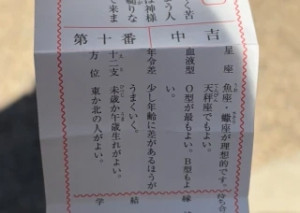 く苦
う人
は神様
で来ま
第十番
中吉
星座 魚座・蠍座が理想的です。
天秤座でもよい。
血液型 O型が最もよい。B型もよ
い。
年令差 少し年齢に差があるほうが
うまくいく。
十二支 未歳か午歳生れがよい。
方位 東か北の人がよい。